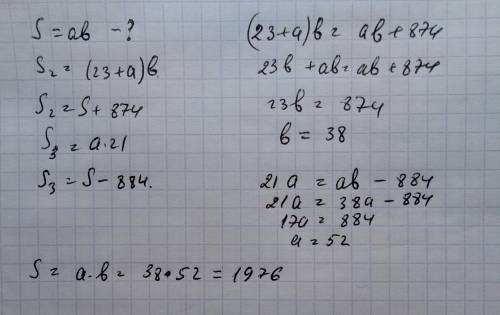 S = ab - ?
S₂ = (23+a)b.
S₂ = S + 874
S₃ = a·21
S₃ = S - 884.
(23+a)b = ab + 874
23b + ab = ab + 874
23b = 874
b = 38
21a = ab - 884
21a = 38a - 884
17a = 884
a = 52
S = a·b = 38·52 = 1976